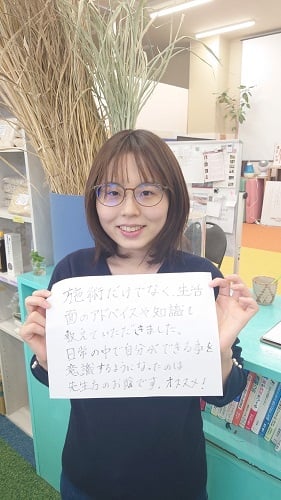 施術だけでなく、生活
面のアドバイスや知識も
教えていただきました。
日常の中で自分ができる事を
意識するようになったのは
先生方のお陰です。オススメ!